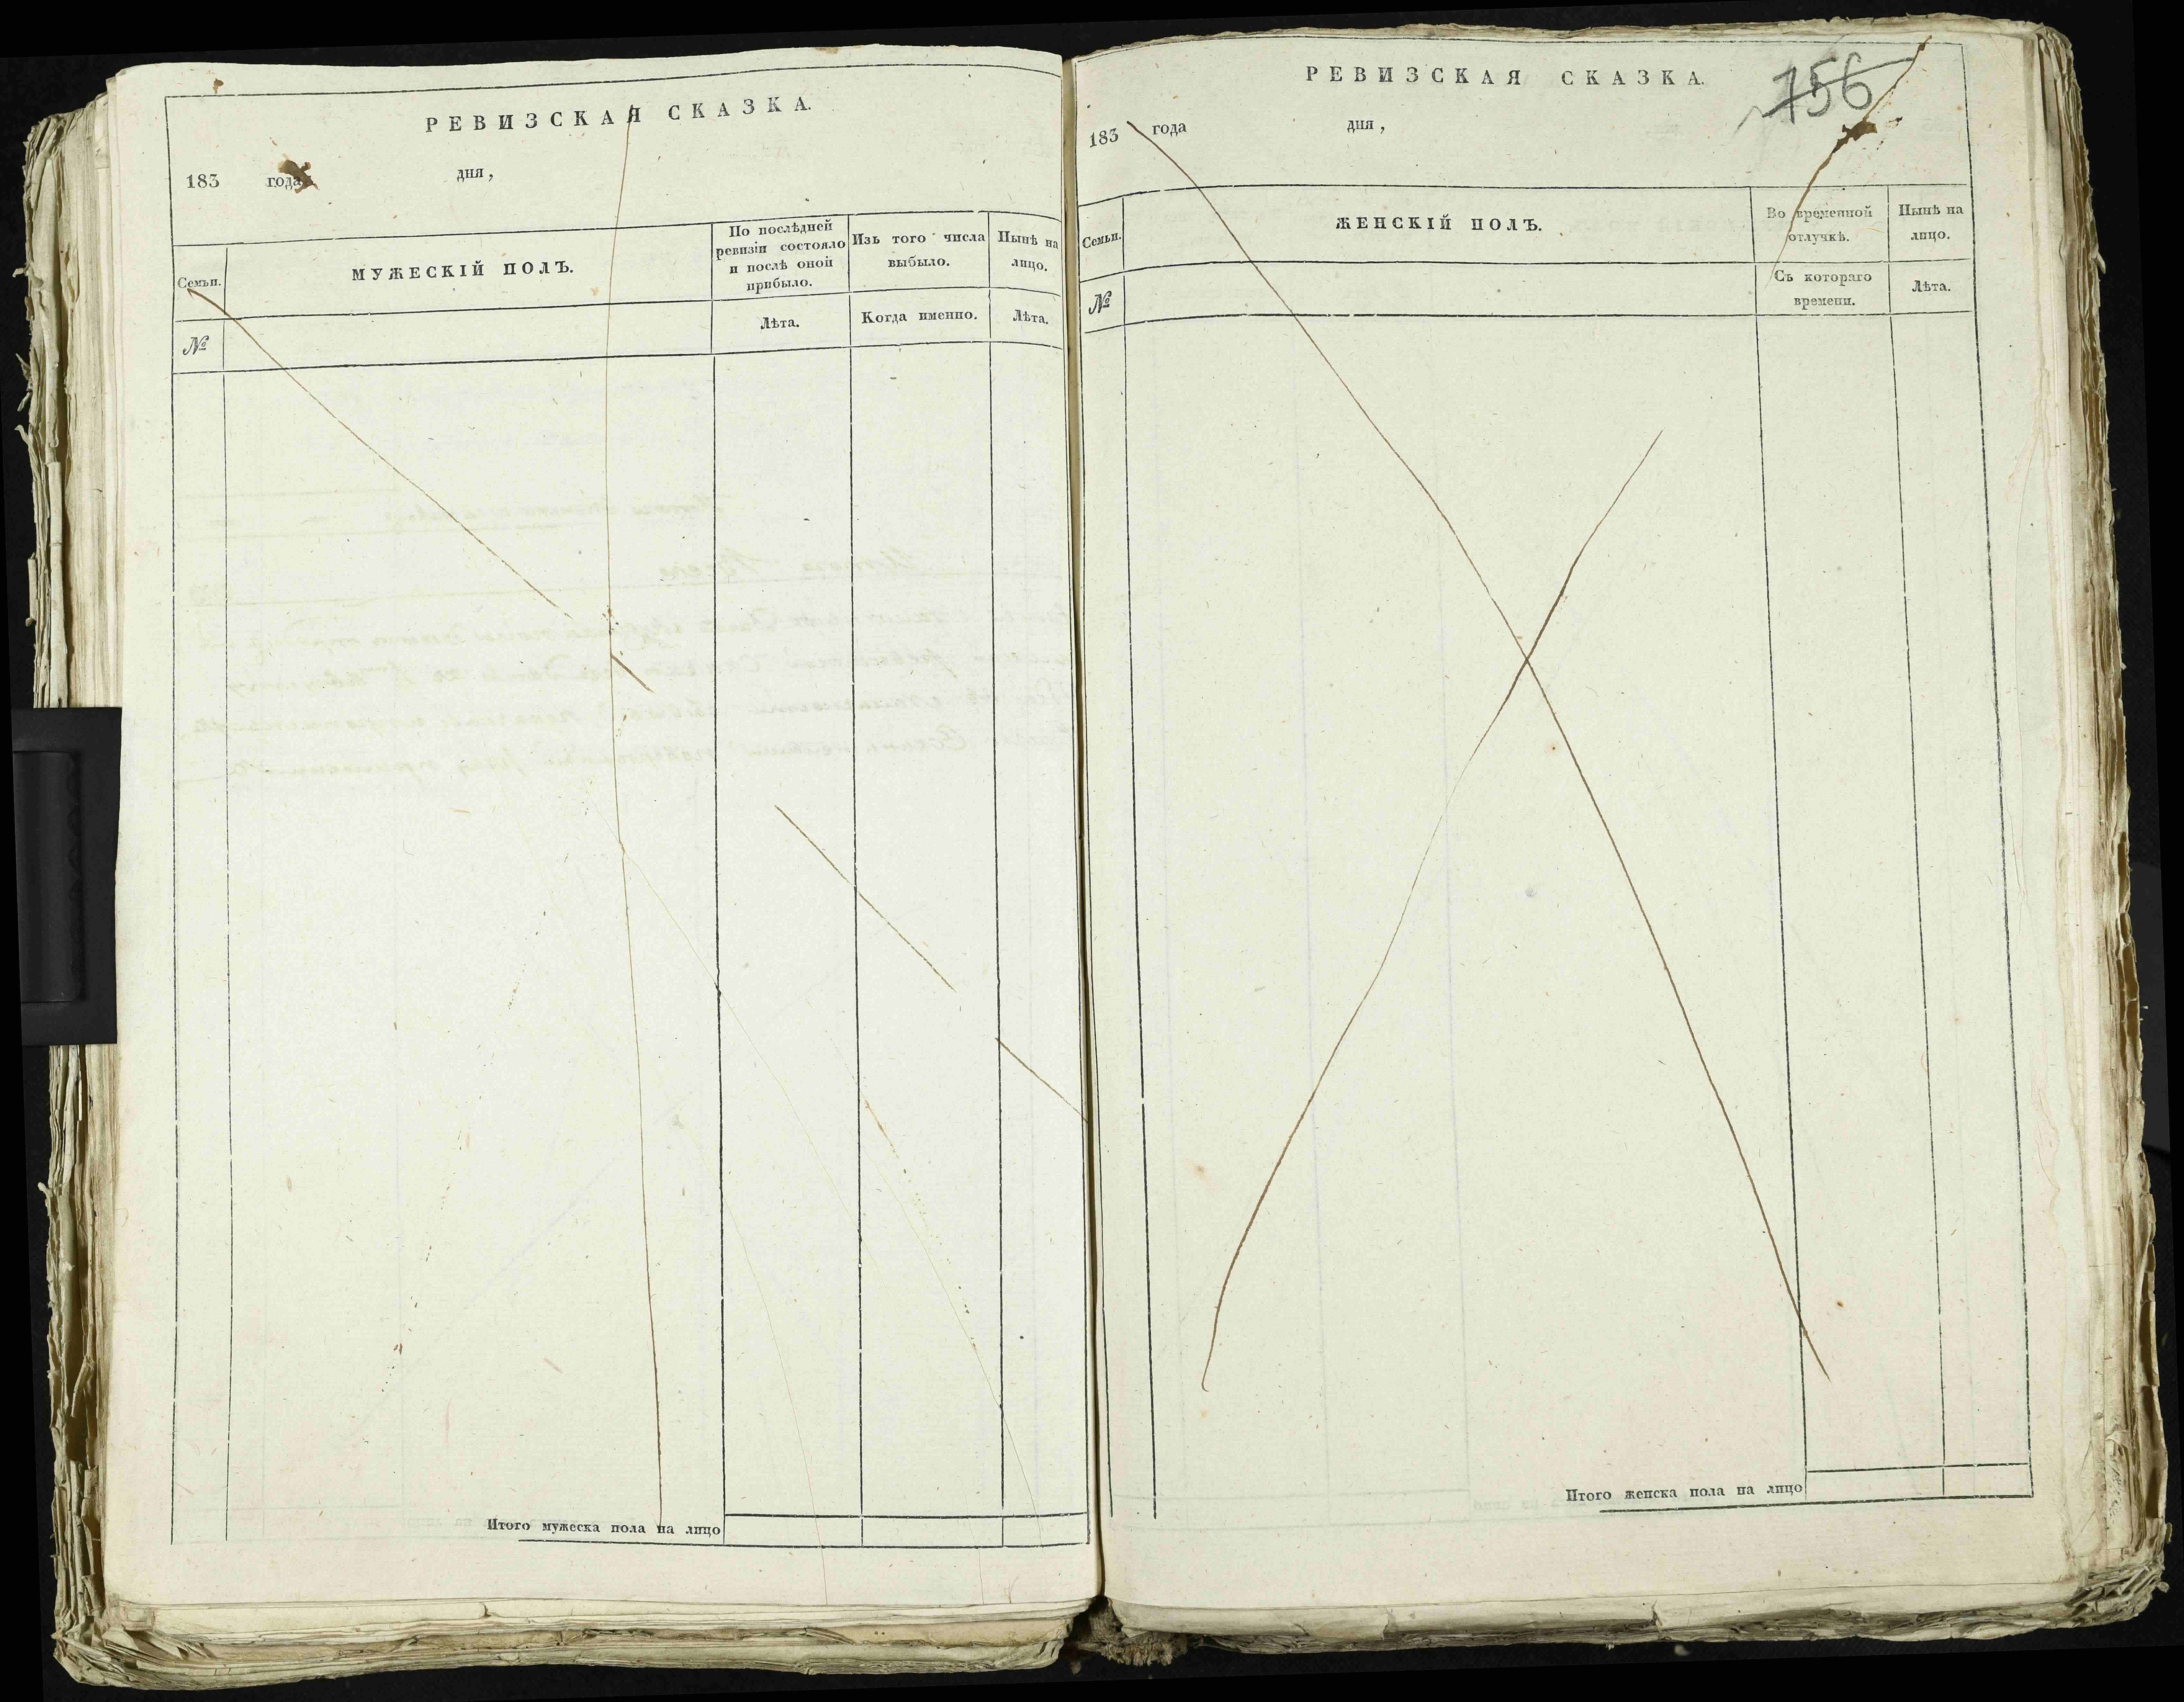 РЕВИЗСКАЯ СКАЗКА.
183 года дня,
Семьи.
МУЖЕСКІЙ ПОЛЪ.
По послѣдней
ревизіи состояло
и послѣ оной
прибыло.
Изъ того числа
выбыло.
Нынѣ на
лицо.
№
Лѣта.
Когда именно.
Лѣта.
Итого мужеска пола на лицо
РЕВИЗСКАЯ СКАЗКА.
756
183 года дня,
Семьи.
ЖЕНСКІЙ ПОЛЪ.
Во временной
отлучкѣ.
Нынѣ на
лицо.
№
Съ котораго
времени.
Лѣта.
Итого женска пола на лицо